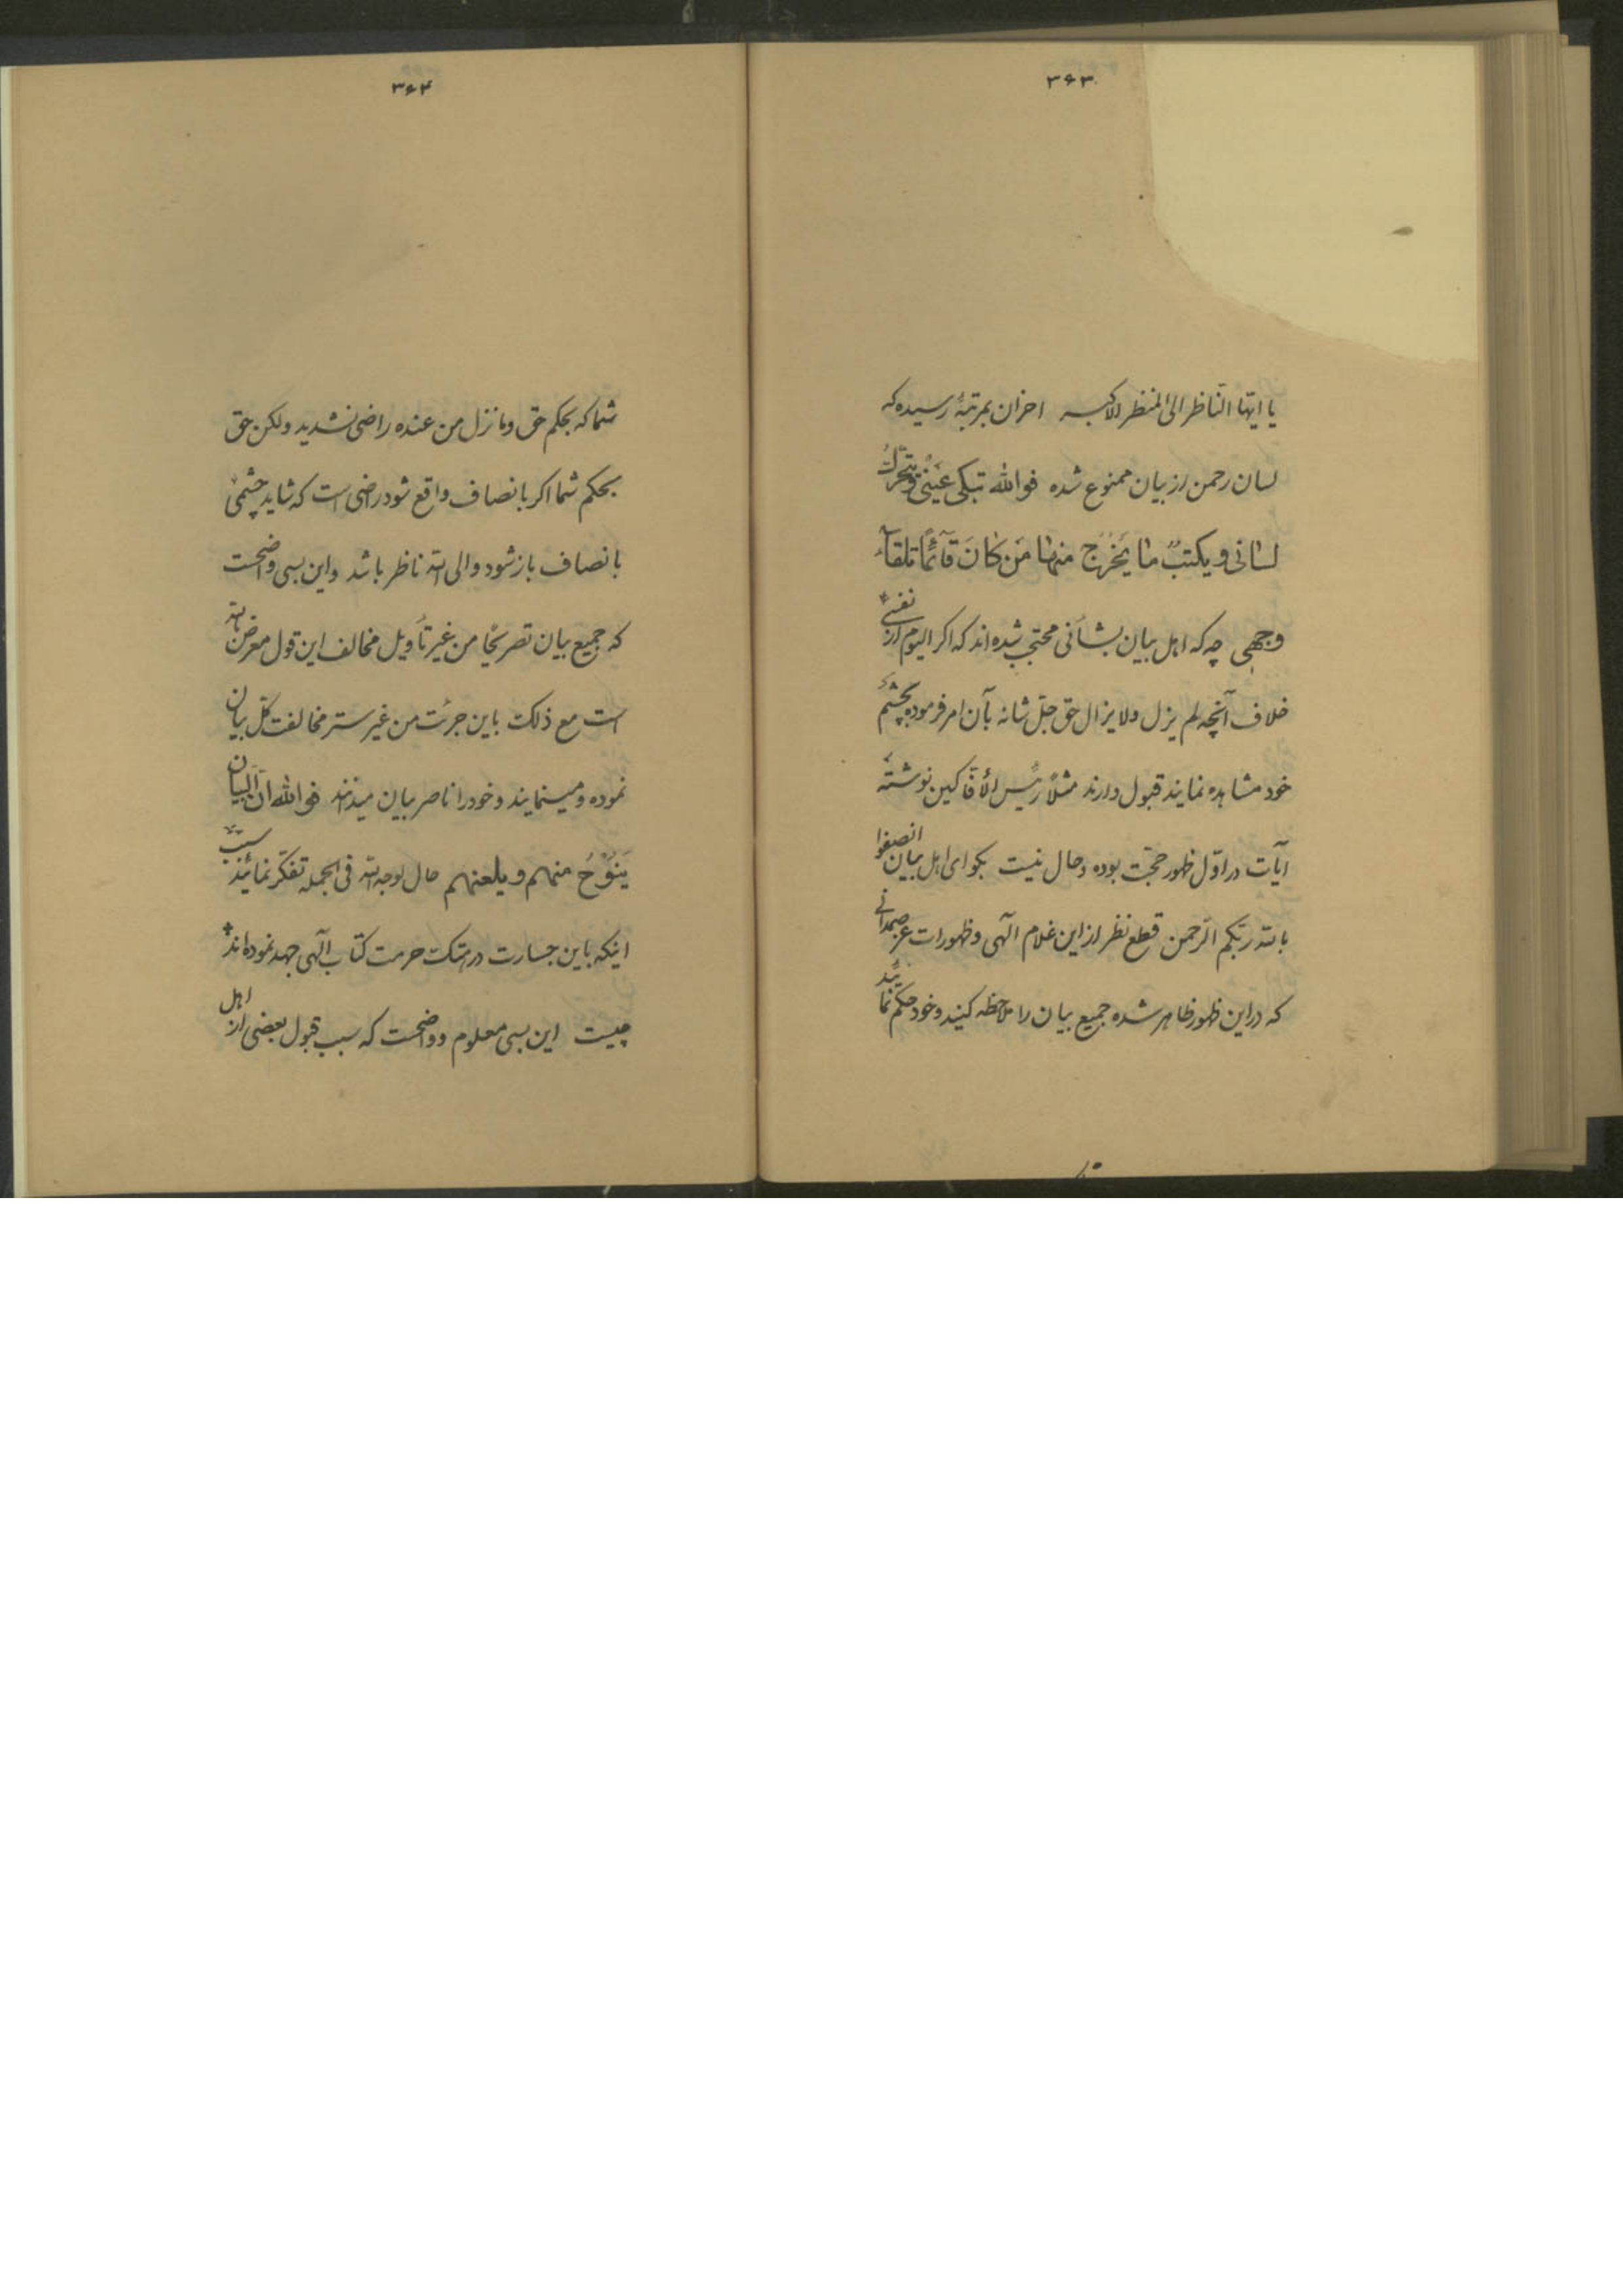 ۳۶۳
یا ایّها النّاظر الی المنظر الاکبر احزان بمرتبهٔ رسیده که
لسان رحمن از بیان ممنوع شده فوالله تبکی عَینی و یتحرّک
لسانی و یکتبُ ما یَخرُج منها مَن کانَ قآئمًا تلقآء
وجهی چه که اهل بیان بشأنی محتجب شده‌اند که اکر الیوم از نفسی
خلاف آنچه لم یزل و لا یزال حق جلّ شانه بآن امر فرموده بچشم
خود مشاهده نمایند قبول دارند مثلاً رئیس الأفّاکین نوشته
آیات در اوّل ظهور حجّت بوده و حال نیست بکو ای اهل بیان انصفوا
بالله ربّکم الرّحمن قطع نظر از این غلام الهی و ظهورات عزّ صمدانی
که در این ظهور ظاهر شده جمیع بیان را ملاحظه کنید و خود حکم نمائید
۳۶۴
شما که بحکم حق و ما نزل من عنده راضی نشدید ولکن حق
بحکم شما اکر بانصاف واقع شود راضی است که شاید چشمی
بانصاف باز شود و الی الله ناظر باشد و این بسی واضحست
که جمیع بیان تصریحًا من غیر تأویل مخالف این قول معرض بالله
است مع ذلک باین جرئت من غیر ستر مخالفت کلّ بیان
نموده و مینمایند و خود را ناصر بیان میدانند فوالله انّ البیان
یَنوُحُ منهم و یلعنهم حال لوجه الله فی الجمله تفکّر نمائید سبب
اینکه باین جسارت در هتک حرمت کتاب الهی جهد نموده‌اند
چیست این بسی معلوم و واضحست که سبب قبول بعضی از اهل